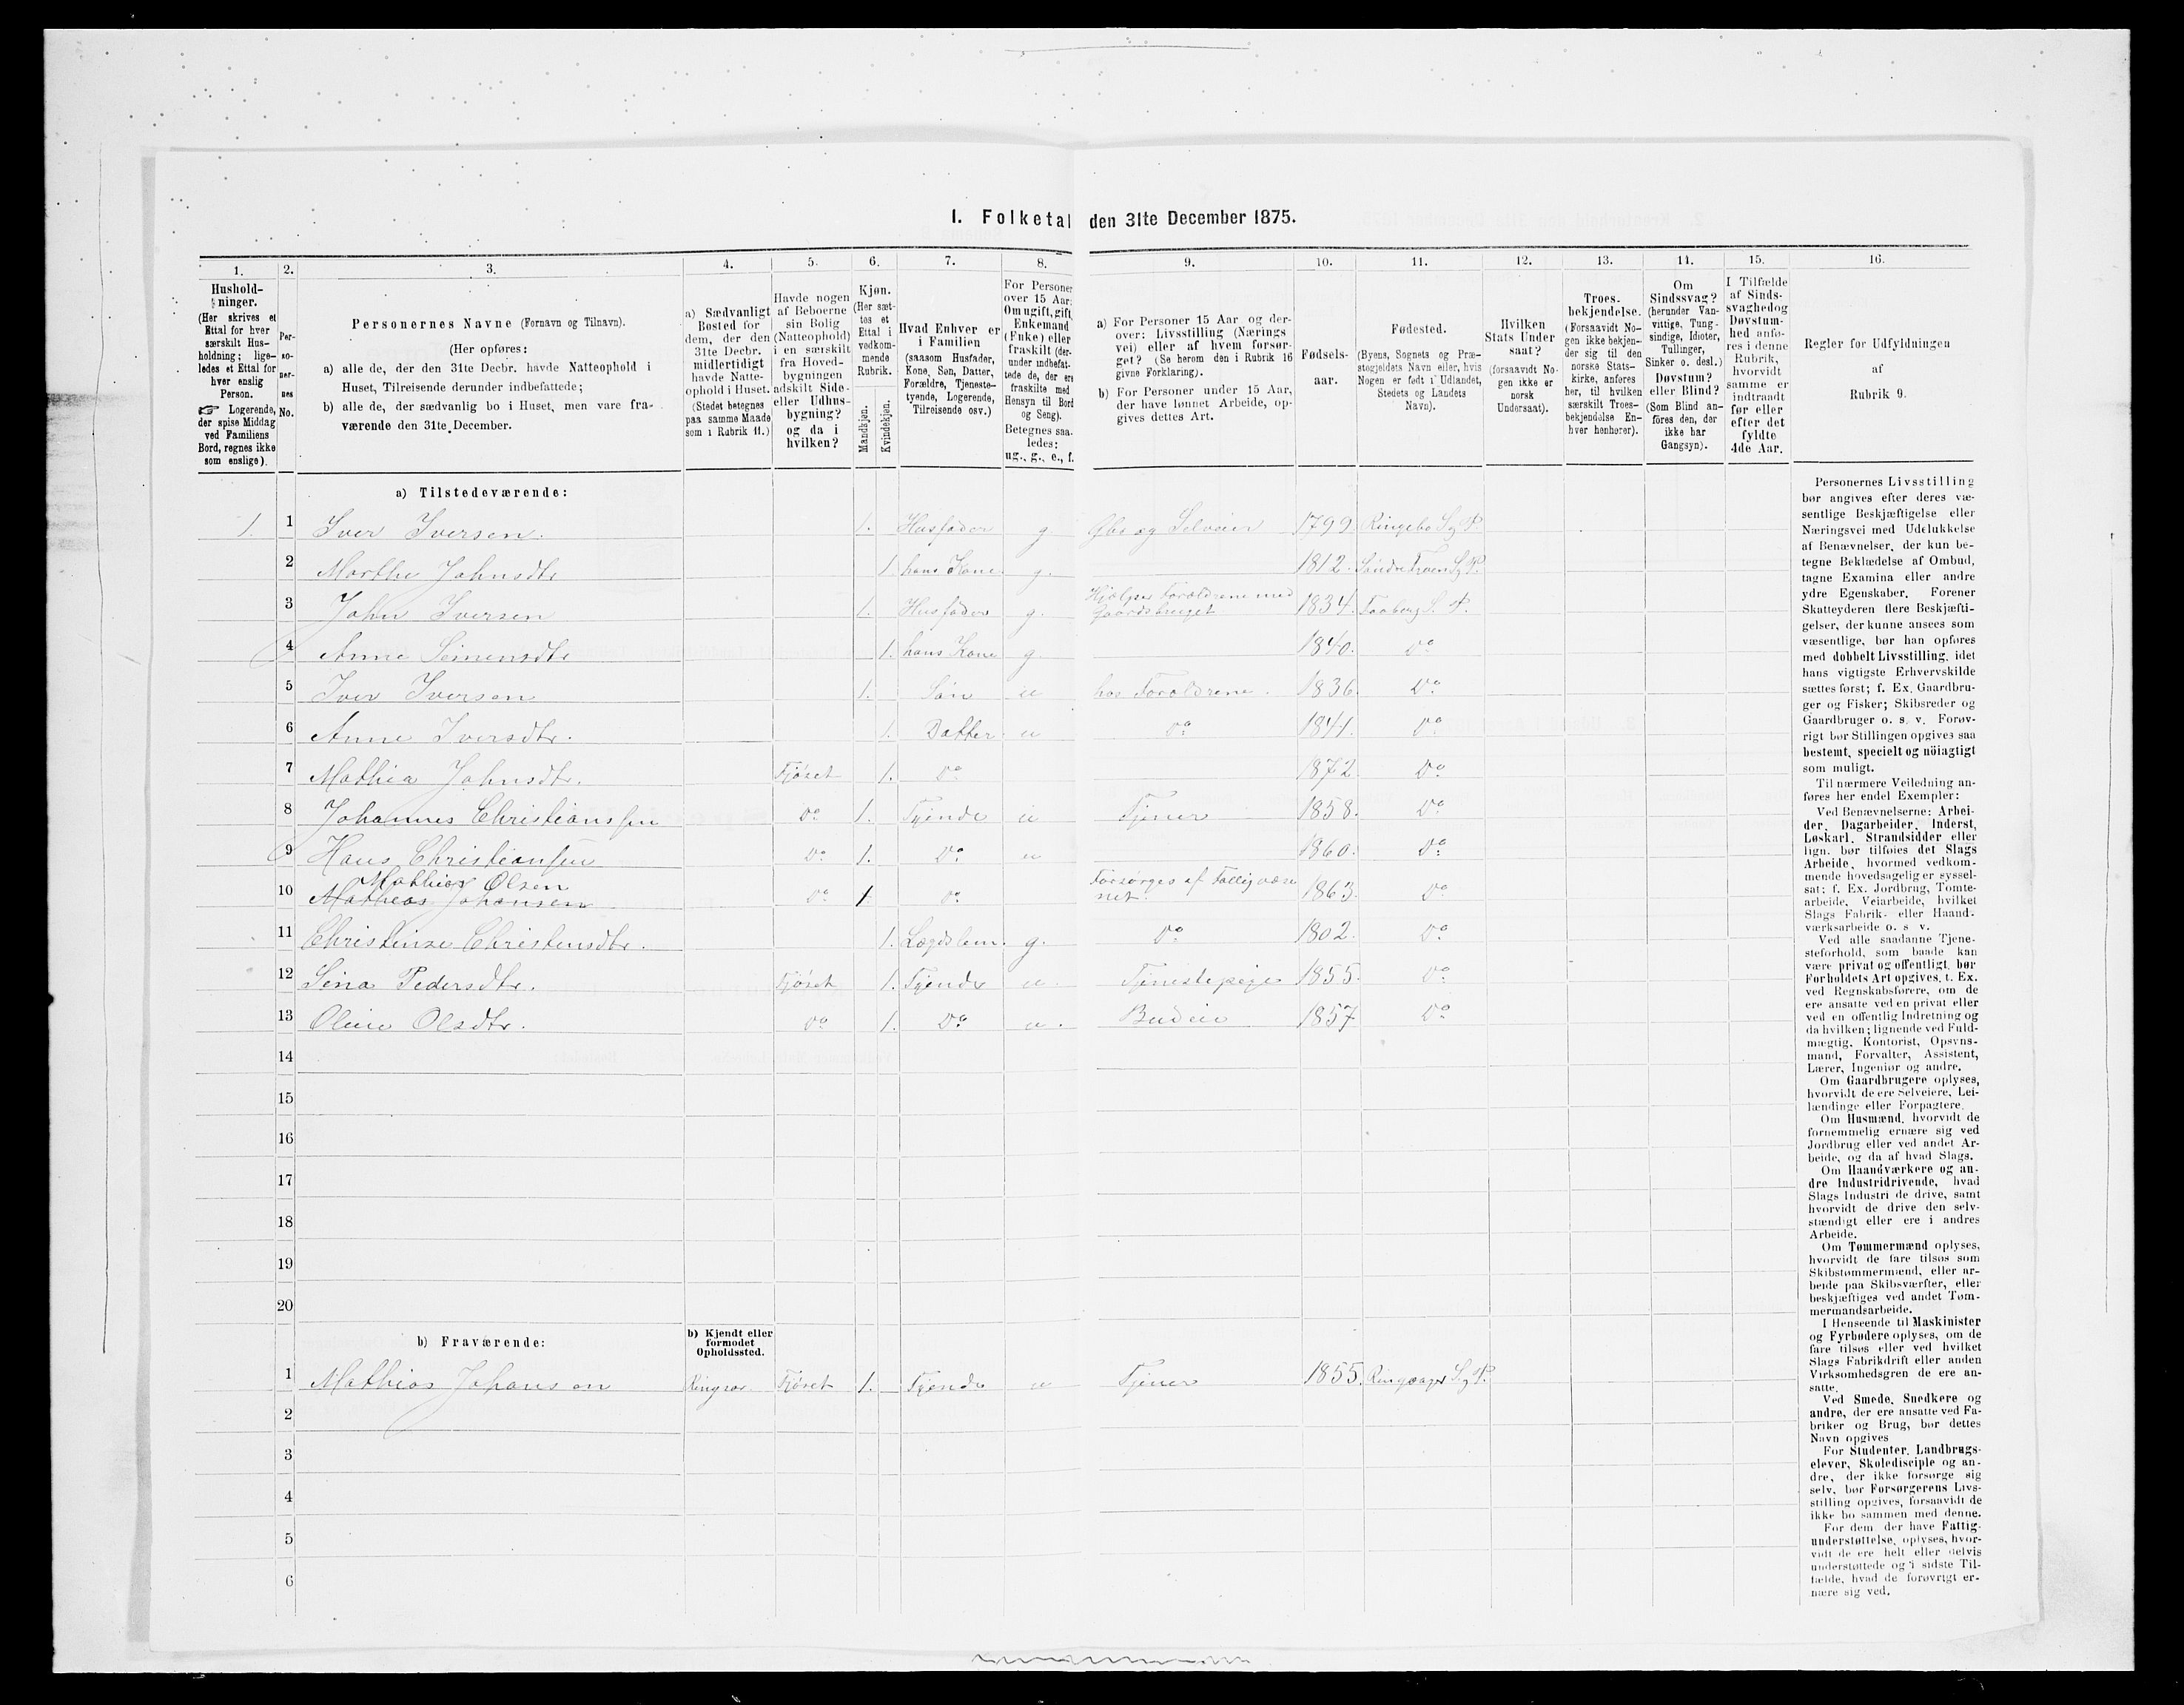 I. Folketal den 31te December 1875.
1. 2. 3. 4. 5. 6. 7. 8. 9. 10. 11. 12. 13. 14. 15. 16.
Hushold-
ninger.
(Her skrives et
Ettal for hver
særskilt Hus-
holdning; lige-
ledes et Ettal for
hver enslig
Person.
☞ Logerende,
der spise Middag
ved Familiens
Bord, regnes ikke
som enslige).
Per-
so-
ner-
nes
No.
Personernes Navne (Fornavn og Tilnavn).
(Her opføres:
a) alle de, der den 31te Decbr. havde Natteophold i
Huset, Tilreisende derunder indbefattede;
b) alle de, der sædvanlig bo i Huset, men vare fra-
værende den 31te December.
a) Sædvanligt
Bosted for
dem, der den
31te Decbr.
midlertidigt
havde Natte-
ophold i Huset.
(Stedet betegnes
paa samme Maade
som i Rubrik 11.)
Havde nogen
af Beboerne
sin Bolig
(Natteophold)
i en særskilt
fra Hoved-
bygningen
adskilt Side-
eller Udhus-
bygning?
og da i
hvilken?
Kjøn.
(Her sæt-
tes et
Ettal i
vedkom-
mende
Rubrik.
Mandkjøn.
Kvindekjøn.
Hvad Enhver er
i Familien
(saasom Husfader,
Kone, Søn, Datter,
Forældre, Tjeneste-
tyende, Logerende,
Tilreisende osv.)
For Personer
over 15 Aar:
Om ugift, gift,
Enkemand
(Enke) eller
fraskilt (der-
under indbefat-
tede de, der ere
fraskilte med
Hensyn til Bord
og Seng).
Betegnes saa-
ledes:
ug., g., e., f.
a) For Personer 15 Aar og der-
over: Livsstilling (Nærings
vei) eller af hvem forsør-
get? (Se herom den i Rubrik 16
givne Forklaring).
b) For Personer under 15 Aar,
der have lønnet Arbeide, op-
gives dettes Art.
Fødsels-
aar.
Fødested.
(Byens, Sognets og Præ-
stegjeldets Navn eller, hvis
Nogen er født i Udlandet,
Stedets og Landets
Navn).
Hvilken
Stats Under
saat?
(forsaavidt No-
gen ikke er
norsk
Undersaat).
Troes-
bekjendelse.
(Forsaavidt No-
gen ikke bekjen-
der sig til den
norske Stats-
kirke, anføres
her, til hvilken
særskilt Troes-
bekjendelse En-
hver henhører).
Om
Sindssvag?
(herunder Van-
vittige, Tung-
sindige, Idioter,
Tullinger,
Sinker o. desl.)
Døvstum?
eller Blind?
(Som Blind an-
føres den, der
ikke har
Gangsyn).
I Tilfælde
af Sinds-
svaghed og
Døvstum-
hed anfø-
res i denne
Rubrik,
hvorvidt
samme er
indtraadt
før eller
efter det
fyldte
4de Aar.
Regler for Udfyldningen
af
Rubrik 9.
a) Tilstedeværende:
1. 1 Iver Iversen. 1. Husfader g. Gbr. og Selveier 1799 Ringebo S. g P.
2 Marthe Johnsdtr 1 hans Kone g. 1812. Søndre Froen S. g P.
3 John Iversen 1. Husfader g. Hjælper Forældrene med Gaardsbruget 1834. Faaberg S. P.
4 Anne Simensdtr 1. hans Kone g. 1840. Do
5 Iver Iversen 1. Søn u hos Forældrene. 1836. Do
6 Anne Iversdtr. 1. Datter u Do 1841. Do
7 Mathea Johnsdtr. Fjøset 1. Do 1872 Do
8 Johannes Christiansen Do 1. Tjende u Tjener 1858. Do
9 Hans Christiansen Do 1. Do u 1860. Do
Mathias Olsen
10 Mathias Johansen Do 1. Do Forsørges af Fattigvæsenet. 1863. Do
11 Christense Christensdtr. 1. Lægdslem. g. Do 1802. Do
12 Sina Pedersdtr. Fjøset 1. Tjende u. Tjenestepige 1855. Do
13 Oline Olsdtr. Do 1. Do u. Budeie 1857 Do
14
15
16
17
18
19
20
b) Fraværende:
b) Kjendt eller
formodet
Opholdssted.
1 Mathias Johansen Fjøset 1. Tjende u Tjener 1855. Ringsager S. g P.
2
3
4
5
6
Personernes Livsstilling
bør angives efter deres væ-
sentlige Beskjæftigelse eller
Næringsvei med Udelukkelse
af Benævnelser, der kun be-
tegne Beklædelse af Ombud,
tagne Examina eller andre
ydre Egenskaber. Forener
Skatteyderen flere Beskjæfti-
gelser, der kunne ansees som
væsentlige, bør han opføres
med dobbelt Livsstilling, idet
hans vigtigste Erhvervskilde
sættes først; f. Ex. Gaardbru-
ger og Fisker; Skibsreder og
Gaardbruger o. s. v. Forøv-
rigt bør Stillingen opgives saa
bestemt, specielt og nöiagtigt
som muligt.
Til nærmere Veiledning an-
føres her endel Exempler:
Ved Benævnelserne: Arbei-
der, Dagarbeider, Inderst,
Løskarl, Strandsidder eller
lign. bør tilføies det Slags
Arbeide, hvormed vedkom-
mende hovedsagelig er syssel-
sat; f. Ex. Jordbrug, Tomte-
arbeide, Veiarbeide, hvilket
Slags Fabrik- eller Haand-
værksarbeide o. s v.
Ved alle saadanne Tjene-
steforhold, som baade kan
være privat og offentligt, bør
Forholdets Art opgives, t. Ex.
ved Regnskabsførere, om de
ere ansatte ved en privat eller
ved en offentlig Indretning og
da hvilken; lignende ved Fuld-
mægtig, Kontorist, Opsyns-
mand, Forvalter, Assistent,
Lærer, Ingeniør og andre.
Om Gaardbrugere oplyses,
hvorvidt de ere Selveiere, Lei-
lændinge eller Forpagtere.
Om Husmænd, hvorvidt de
fornemmelig ernære sig ved
Jordbrug eller ved andet Ar-
beide, og da af hvad Slags.
Om Haandværkere og an-
dre Industridrivende, hvad
Slags Industri de drive, samt
hvorvidt de drive den selv-
stændigt eller ere i andres
Arbeide.
Om Tømmermænd oplyses,
hvorvidt de fare tilsøs som
Skibstømmermænd, eller ar-
beide paa Skibsværfter, eller
beskjæftiges ved andet Tøm-
mermandsarbeide.
I Henseende til Maskinister
og Fyrbødere oplyses, om de
fare tilsøs eller ved hvilket
Slags Fabrikdrift eller anden
Virksomhedsgren de ere an-
satte.
Ved Smede, Snedkere og
andre, der ere ansatte ved Fa-
briker og Brug, bør dettes
Navn opgives
For Studenter, Landbrugs-
elever, Skoledisciple og an-
dre, der ikke forsørge sig
selv, bør Forsørgerens Livs-
stilling opgives, forsaavidt de
ikke bo sammen med denne.
For dem der have Fattig-
understøttelse, oplyses, hvor-
vidt de ere helt eller delvis
understøttede og i sidste Til-
fælde, hvad de forøvrigt er-
nære sig ved.